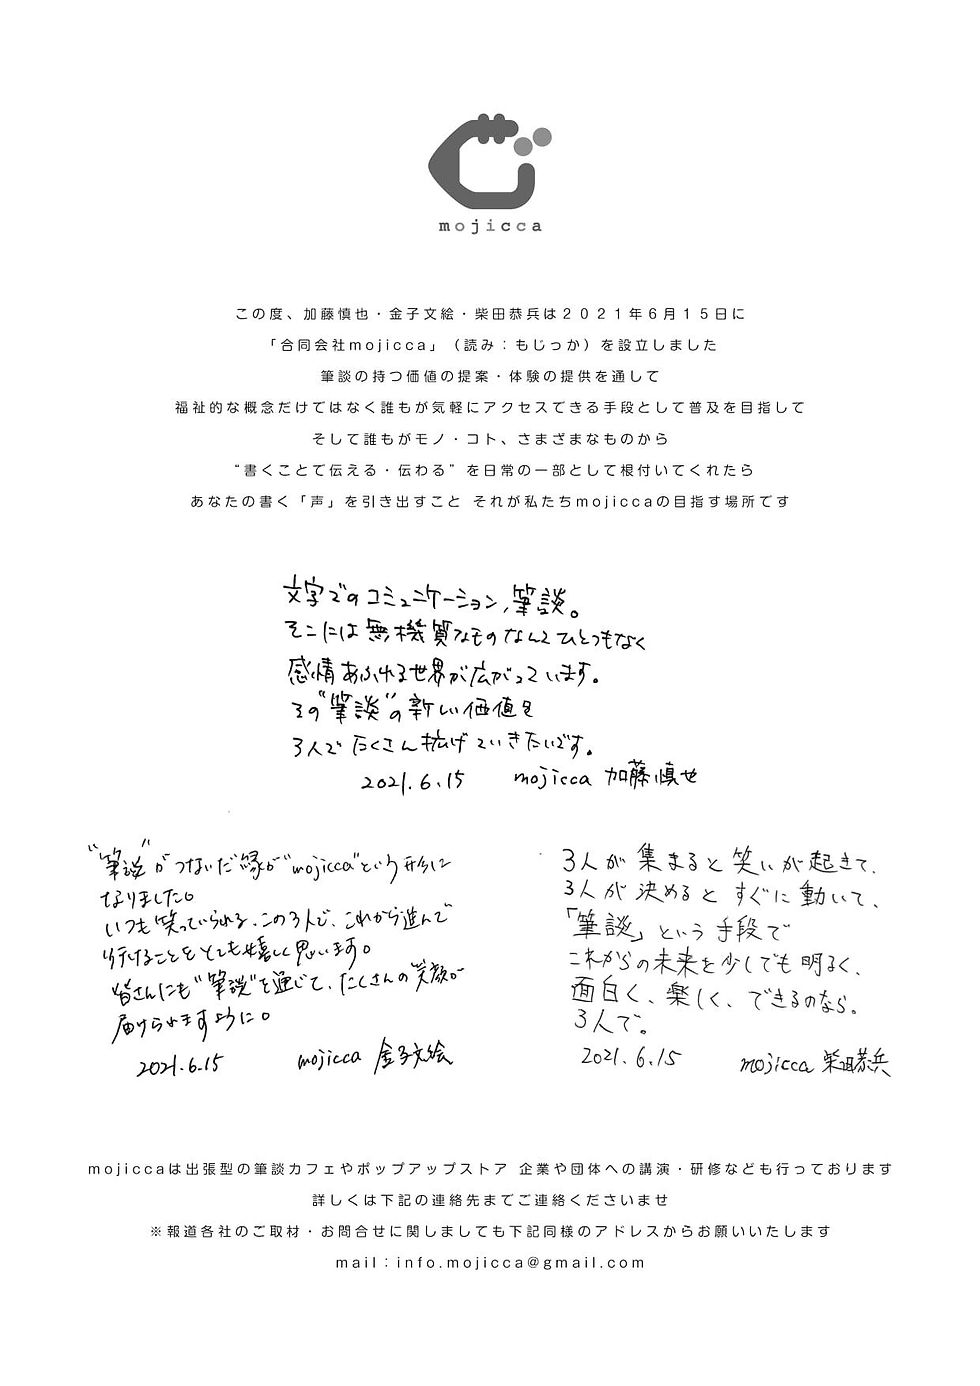 mojicca
この度、加藤慎也・金子文絵・柴田恭兵は２０２１年６月１５日に
「合同会社mojicca」（読み：もじっか）を設立しました
筆談の持つ価値の提案・体験の提供を通して
福祉的な概念だけではなく誰もが気軽にアクセスできる手段として普及を目指して
そして誰もがモノ・コト、さまざまなものから
“書くことで伝える・伝わる”を日常の一部として根付いてくれたら
あなたの書く「声」を引き出すこと それが私たちmojiccaの目指す場所です
文字でのコミュニケーション、筆談。
そこには無機質なものなんてひとつもなく
感情あふれる世界が広がっています。
その“筆談”の新しい価値を
3人でたくさん拡げていきたいです。
2021.6.15 mojicca 加藤慎也
“筆談”がつないだ縁が“mojicca”という形に
なりました。
いつも笑っていられる、この3人で、これから進んで
行けることをとても嬉しく思います。
皆さんにも“筆談”を通じて、たくさんの笑顔が
届けられますように。
2021.6.15 mojicca 金子文絵
3人が集まると笑いが起きて、
3人が決めるとすぐに動いて、
「筆談」という手段で
これからの未来を少しでも明るく、
面白く、楽しく、できるのなら。
3人で。
2021.6.15 mojicca 柴田恭兵
mojiccaは出張型の筆談カフェやポップアップストア 企業や団体への講演・研修なども行っております
詳しくは下記の連絡先までご連絡くださいませ
※報道各社のご取材・お問合せに関しましても下記同様のアドレスからお願いいたします
mail：info.mojicca@gmail.com